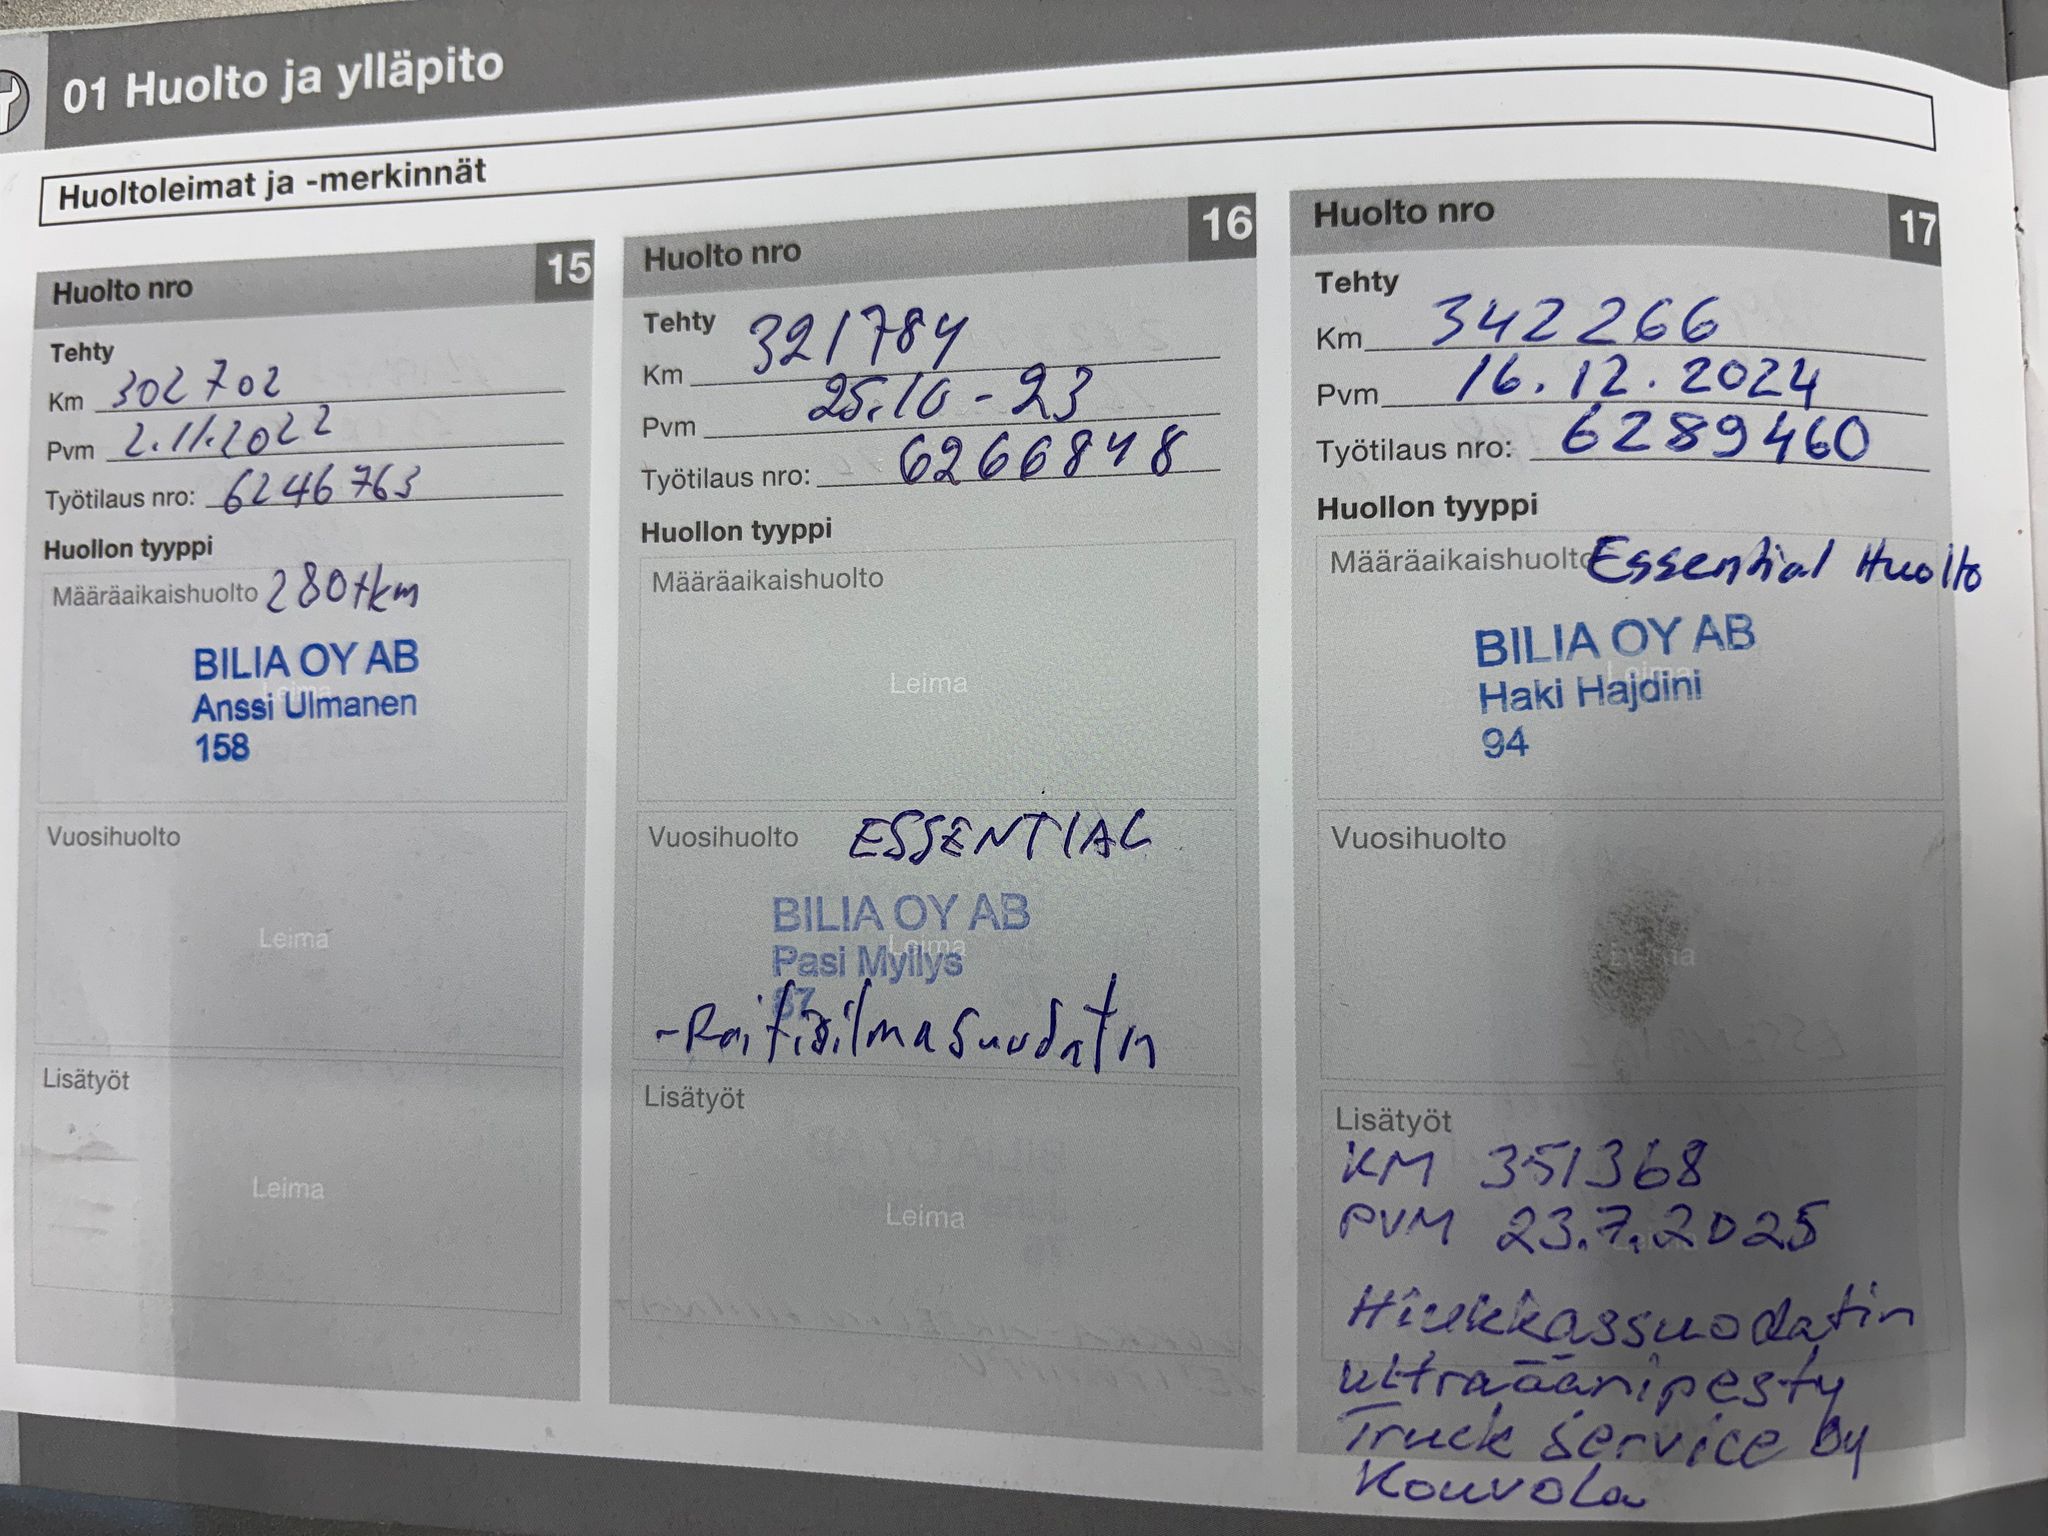 01 Huolto ja ylläpito
Huoltoleimat ja -merkinnät
Huolto nro 15
Tehty
Km 302 702
Pvm 2.11.2022
Työtilaus nro: 6246763
Huollon tyyppi
Määräaikaishuolto 280tkm
BILIA OY AB
Leima
Anssi Ulmanen
158
Vuosihuolto
Leima
Lisätyöt
Leima
Huolto nro 16
Tehty
Km 321784
Pvm 25.10-23
Työtilaus nro: 6266848
Huollon tyyppi
Määräaikaishuolto
Leima
Vuosihuolto ESSENTIAL
BILIA OY AB
Leima
Pasi Myllys
87
-Raitisilmasuodatin
Lisätyöt
Leima
Huolto nro 17
Tehty
Km 342266
Pvm 16.12.2024
Työtilaus nro: 6289460
Huollon tyyppi
Määräaikaishuolto Essential Huolto
BILIA OY AB
Leima
Haki Hajdini
94
Vuosihuolto
Leima
Lisätyöt
KM 351368
PVM 23.7.2025
Leima
Hiukkassuodatin
ultraäänipesty
Truck service Oy
Kouvola